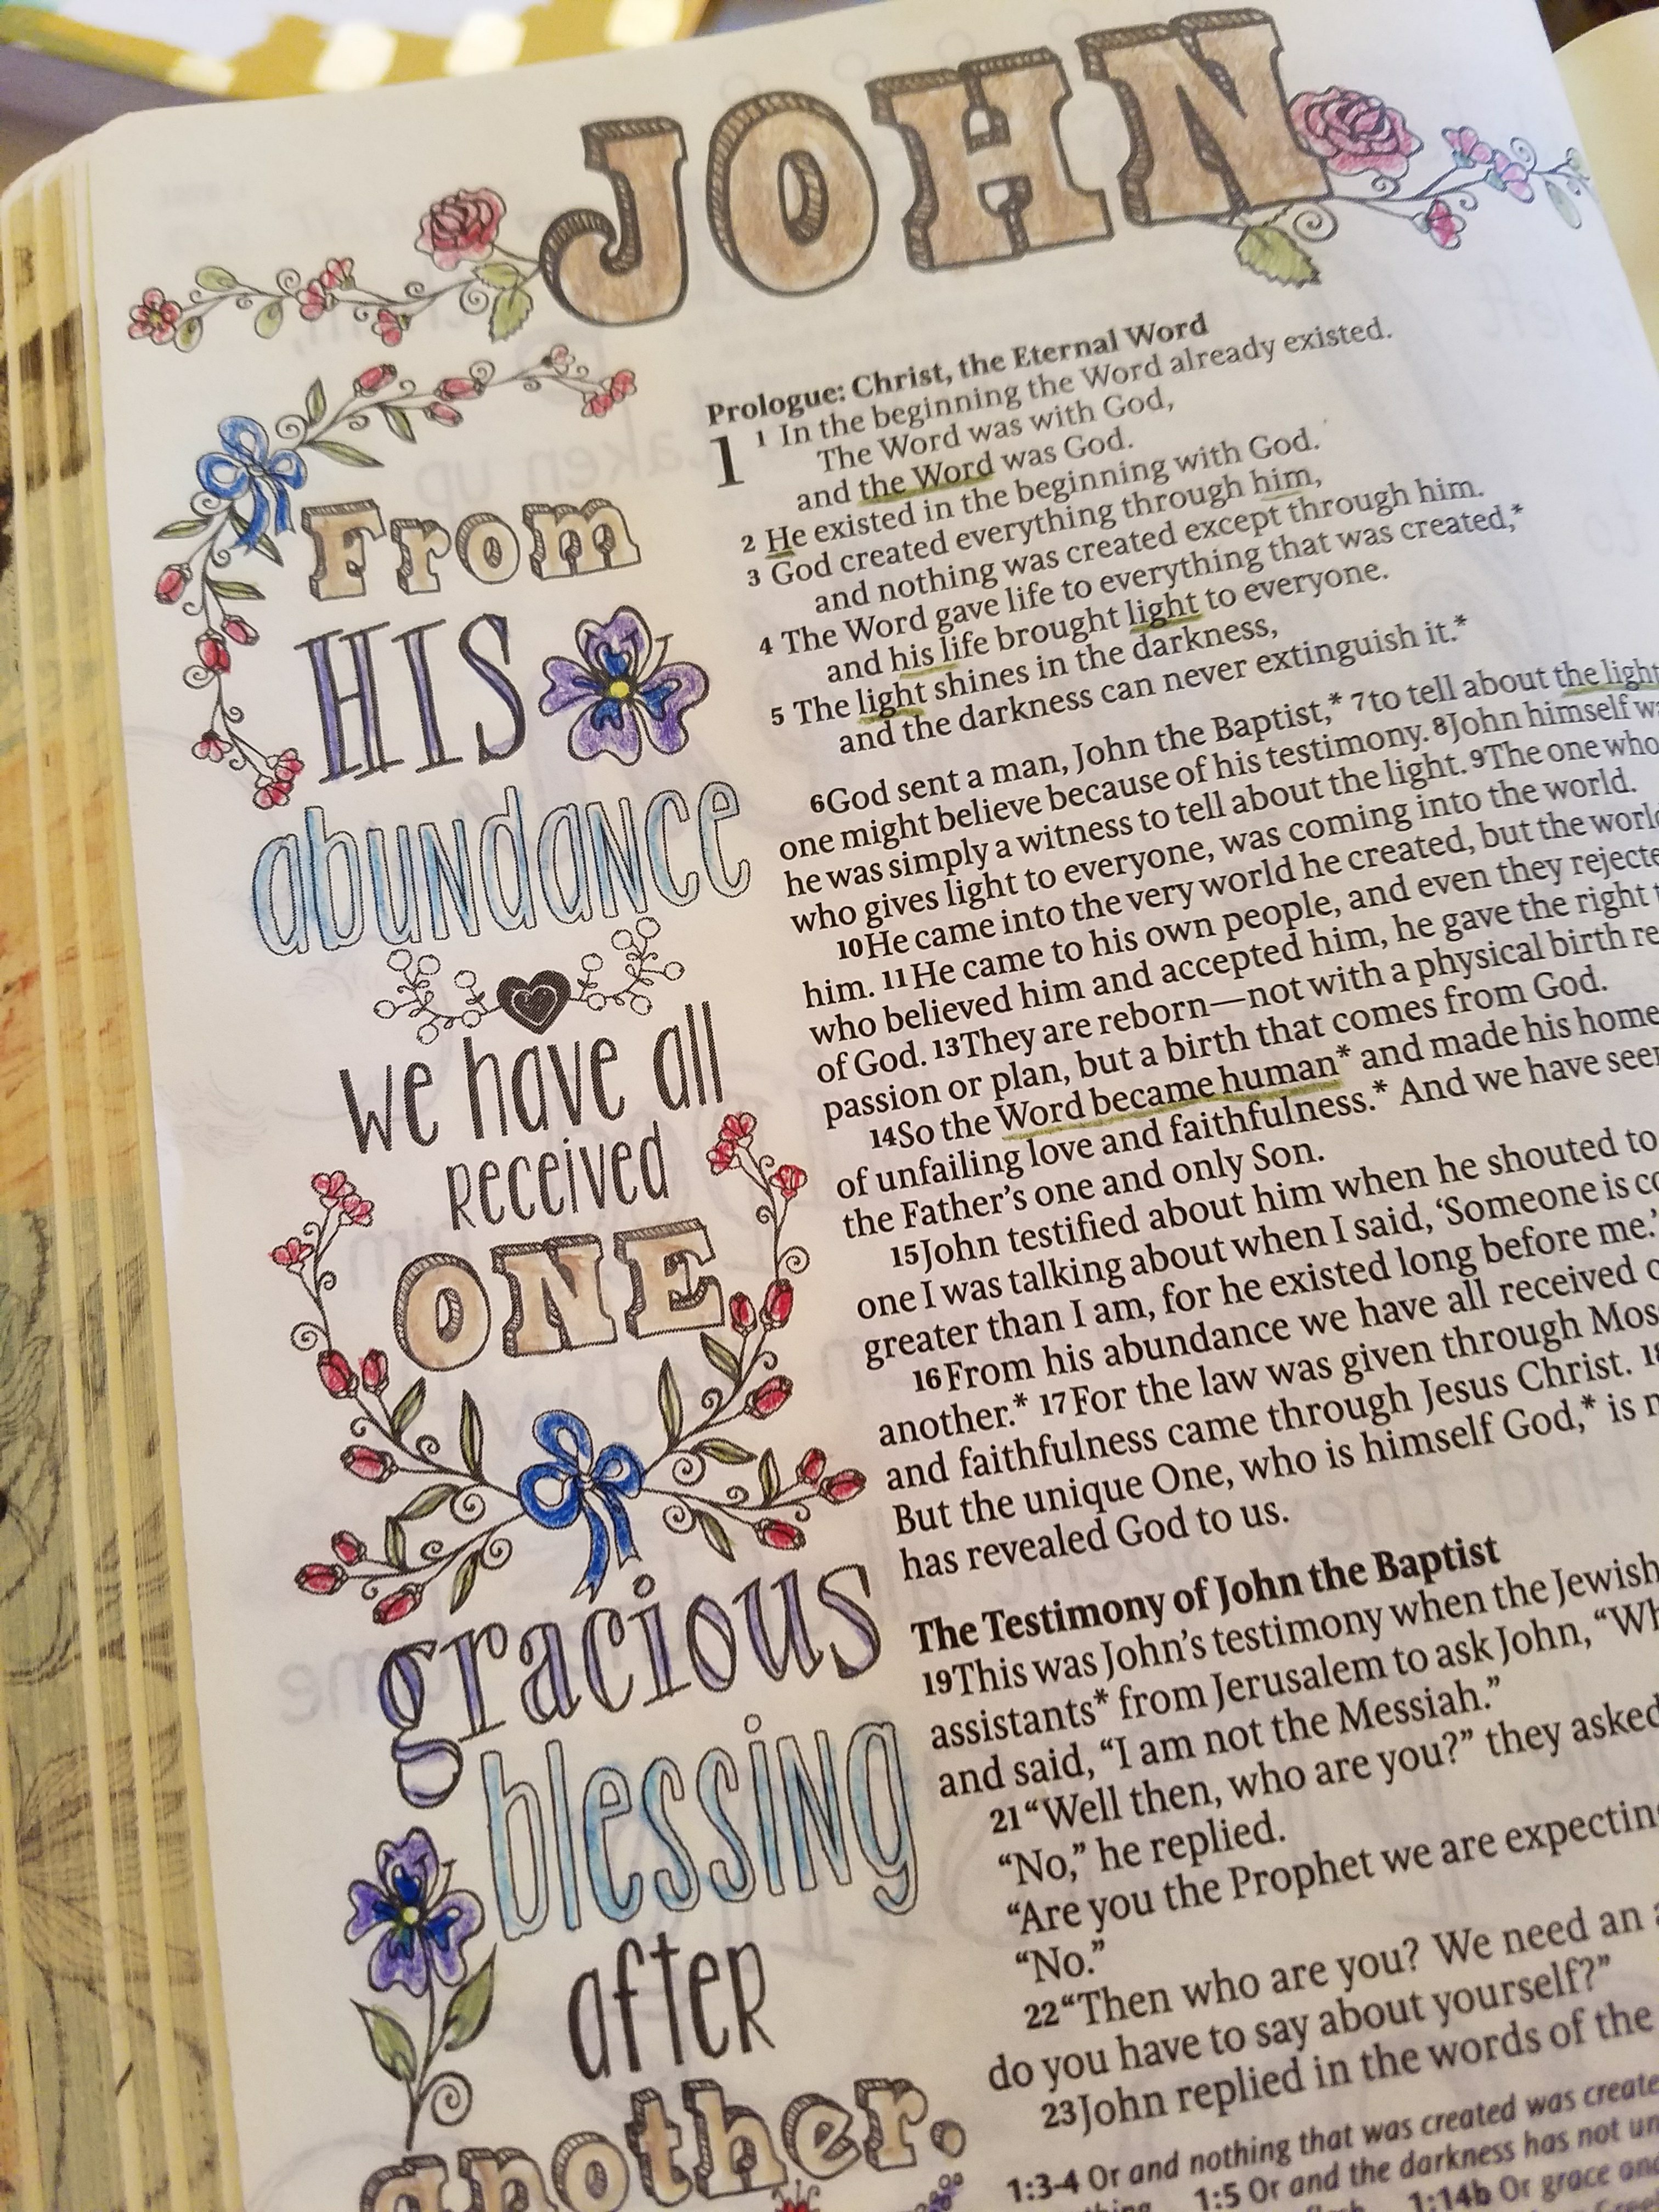 JOHN
From
HIS
abundance
we have all
received
ONE
gracious
blessing
after
another.
Prologue: Christ, the Eternal Word
1 1 In the beginning the Word already existed.
The Word was with God,
and the Word was God.
2 He existed in the beginning with God.
3 God created everything through him,
and nothing was created except through him.
4 The Word gave life to everything that was created,*
and his life brought light to everyone.
5 The light shines in the darkness,
and the darkness can never extinguish it.*
6God sent a man, John the Baptist,* 7to tell about the light
one might believe because of his testimony. 8John himself
he was simply a witness to tell about the light. 9The one who
who gives light to everyone, was coming into the world.
10He came into the very world he created, but the
him. 11He came to his own people, and even they
who believed him and accepted him, he gave the right
of God. 13They are reborn—not with a physical birth
passion or plan, but a birth that comes from God.
14So the Word became human* and made his home
of unfailing love and faithfulness.* And we have
the Father's one and only Son.
15John testified about him when he shouted to
one I was talking about when I said, ‘Someone is
greater than I am, for he existed long before me.’
16From his abundance we have all received
another.* 17For the law was given through
and faithfulness came through Jesus Christ.
But the unique One, who is himself God,* is
has revealed God to us.
The Testimony of John the Baptist
19This was John's testimony when the Jewish
assistants* from Jerusalem to ask John,
and said, “I am not the Messiah.”
21“Well then, who are you?” they asked
“No,” he replied.
“Are you the Prophet we are
“No.”
22“Then who are you? We need an
do you have to say about yourself?”
23John replied in the words of the
1:3-4 Or and nothing that was created was
1:5 Or and the darkness has not
1:14b Or grace